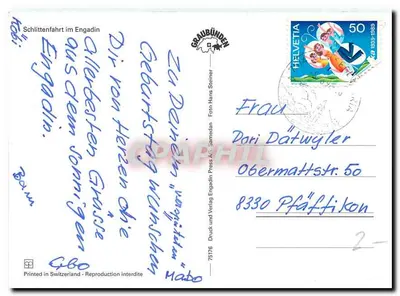 Schlittenfahrt im Engadin
GRAUBÜNDEN
Zu Deinem "verspäteten"
Geburtstag wünschen
Dir von Herzen die
allerbesten Grüsse
aus dem sonnigen
Engadin
Köbi
Mado
Gbo
Printed in Switzerland - Reproduction interdite
75176 Druck und Verlag Engadin Press A.G. Samedan Foto Hans Steiner
HELVETIA 50
Frau
Dori Dätwyler
Obermattstr. 50
8330 Pfäffikon
2.-